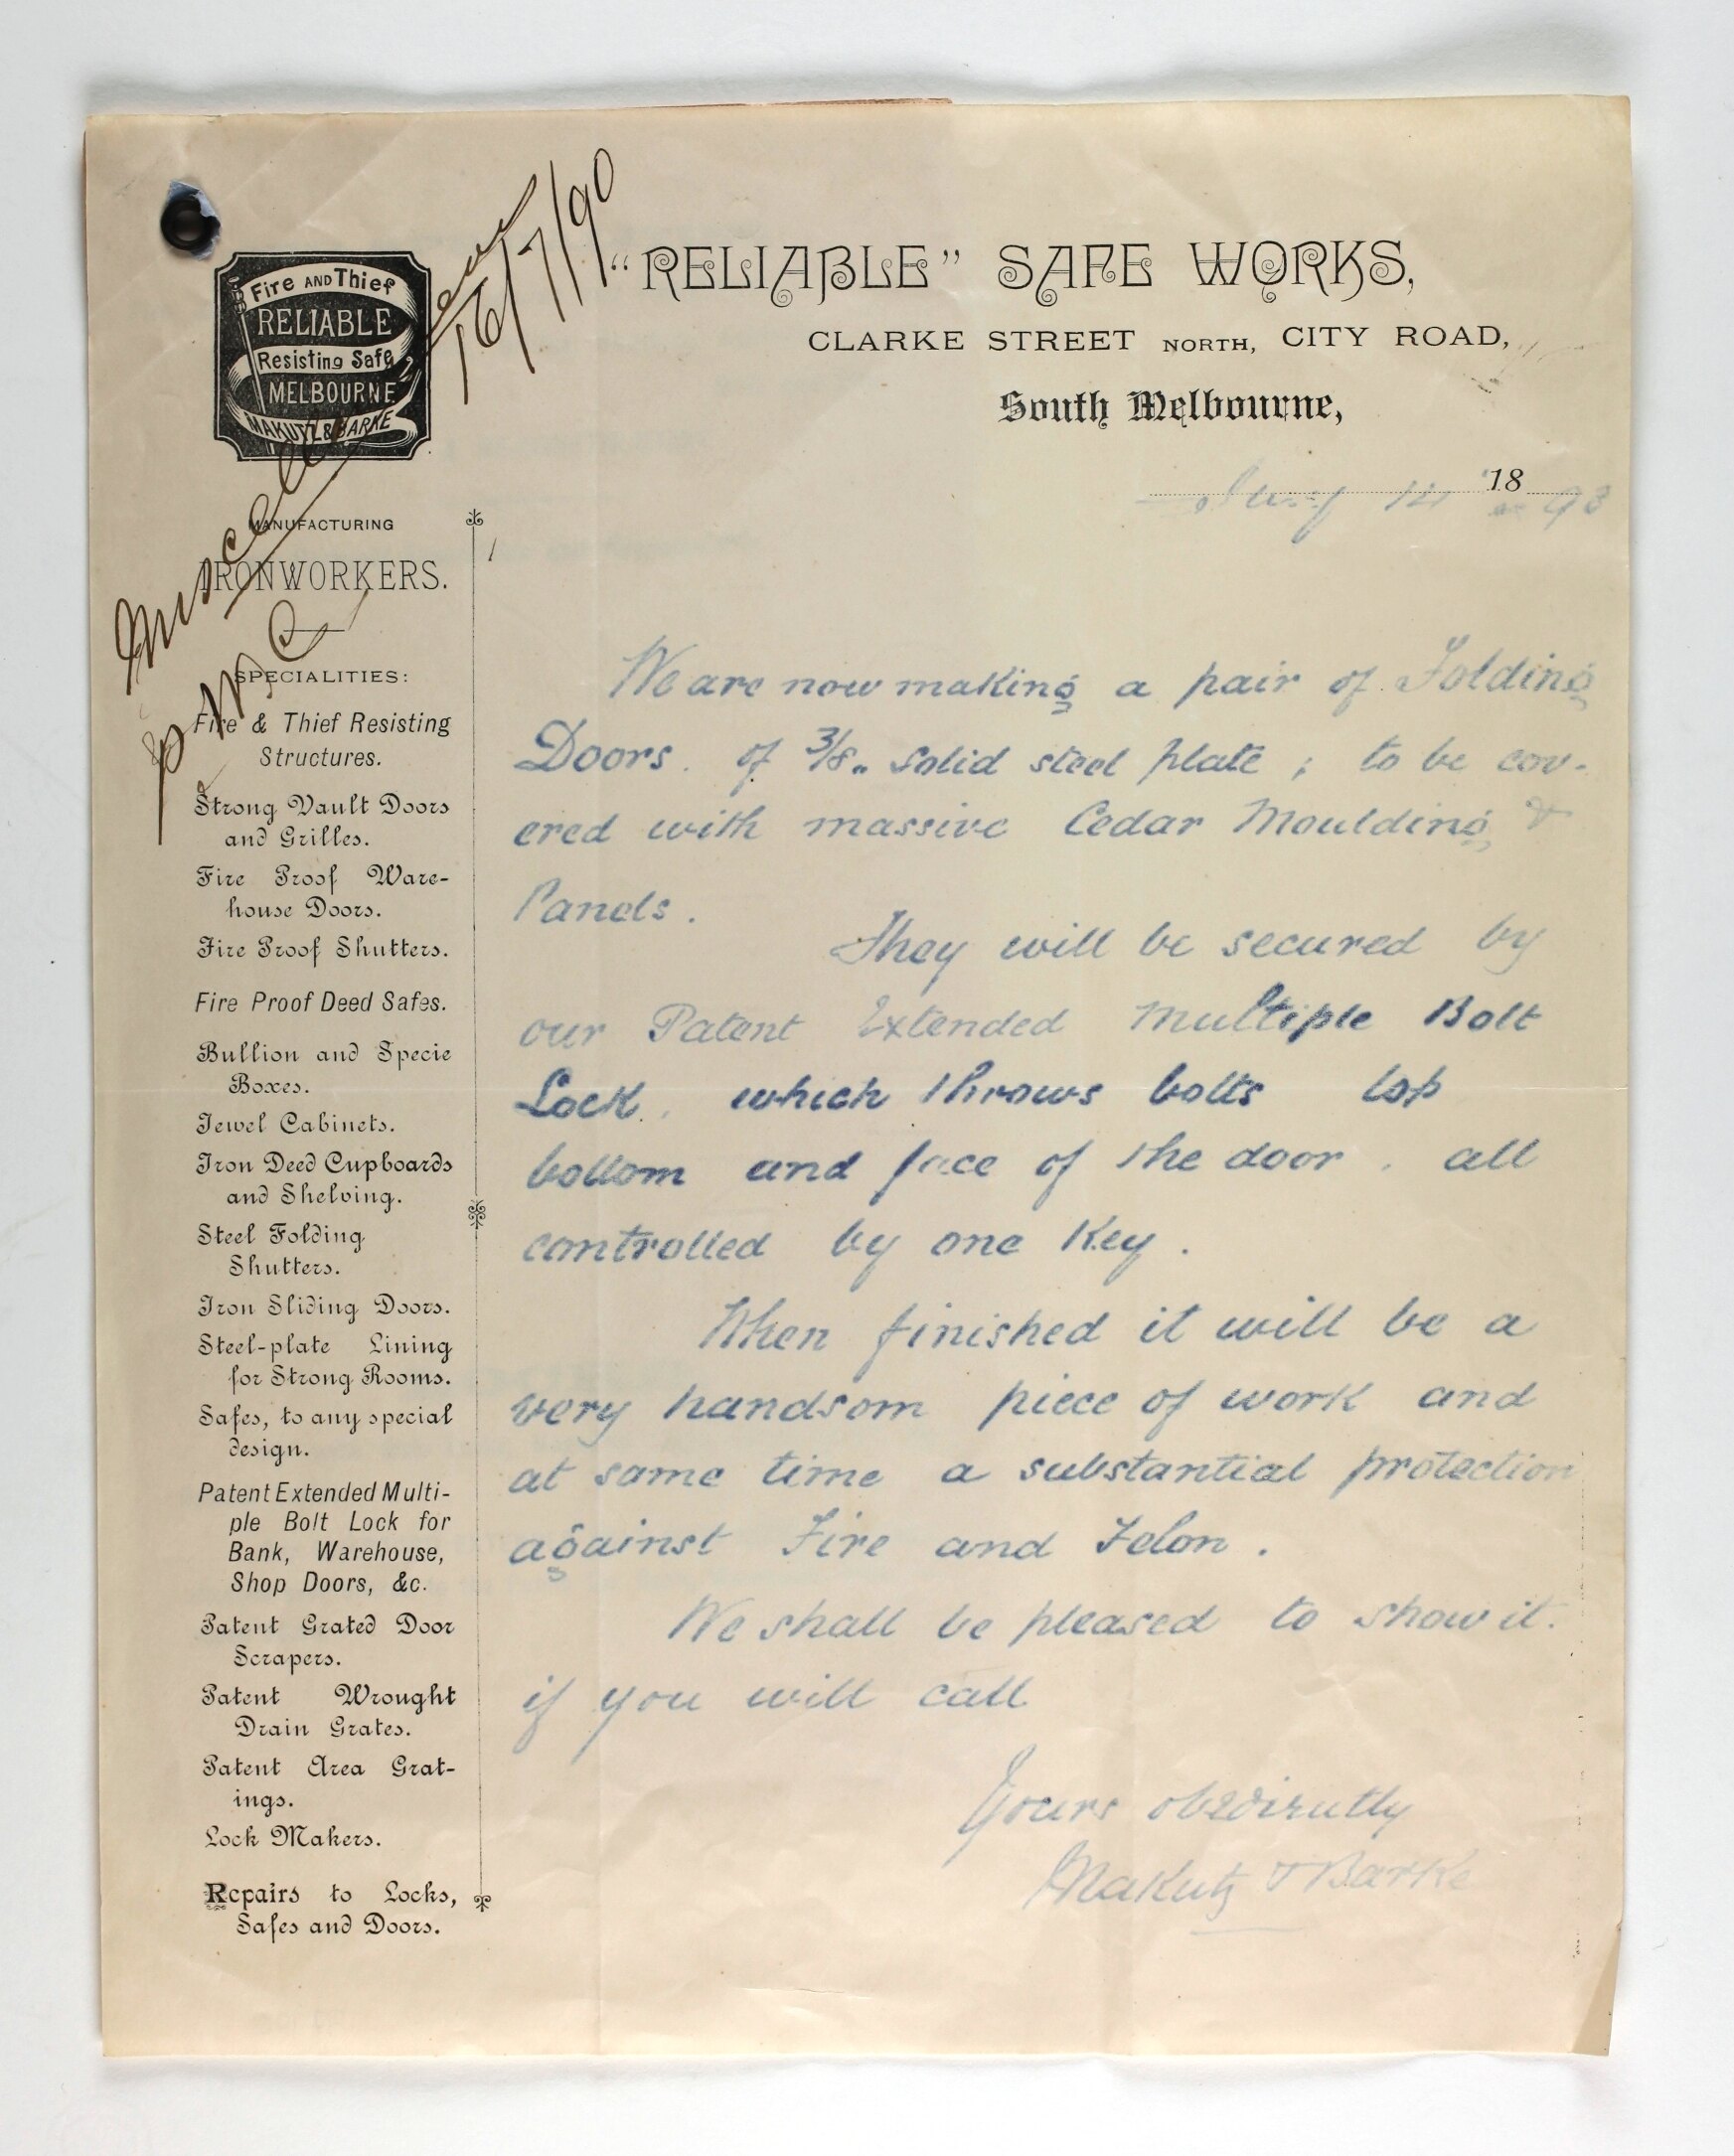 Fire AND Thief
RELIABLE
Resisting Safe
MELBOURNE
MAKUTZ & BARKE
16/7/90
"RELIABLE" SAFE WORKS,
CLARKE STREET NORTH, CITY ROAD,
South Melbourne,
14 18
MANUFACTURING
IRONWORKERS.
SPECIALITIES:
Fire & Thief Resisting
Structures.
Strong Vault Doors
and Grilles.
Fire Proof Ware-
house Doors.
Fire Proof Shutters.
Fire Proof Deed Safes.
Bullion and Specie
Boxes.
Jewel Cabinets.
Iron Deed Cupboards
and Shelving.
Steel Folding
Shutters.
Iron Sliding Doors.
Steel-plate Lining
for Strong Rooms.
Safes, to any special
design.
Patent Extended Multi-
ple Bolt Lock for
Bank, Warehouse,
Shop Doors, &c.
Patent Grated Door
Scrapers.
Patent Wrought
Drain Grates.
Patent Area Grat-
ings.
Lock Makers.
Repairs to Locks,
Safes and Doors.
We are now making a pair of Folding
Doors. of 3/8" solid steel plate ; to be cov-
ered with massive Cedar Moulding &
Panels.
They will be secured by
our Patent Extended Multiple Bolt
Lock. which throws bolts top
bottom and face of the door. all
controlled by one Key.
When finished it will be a
very handsom piece of work and
at same time a substantial protection
against Fire and Felon.
We shall be pleased to show it.
if you will call
Yours obedirutly
Makutz & Barke